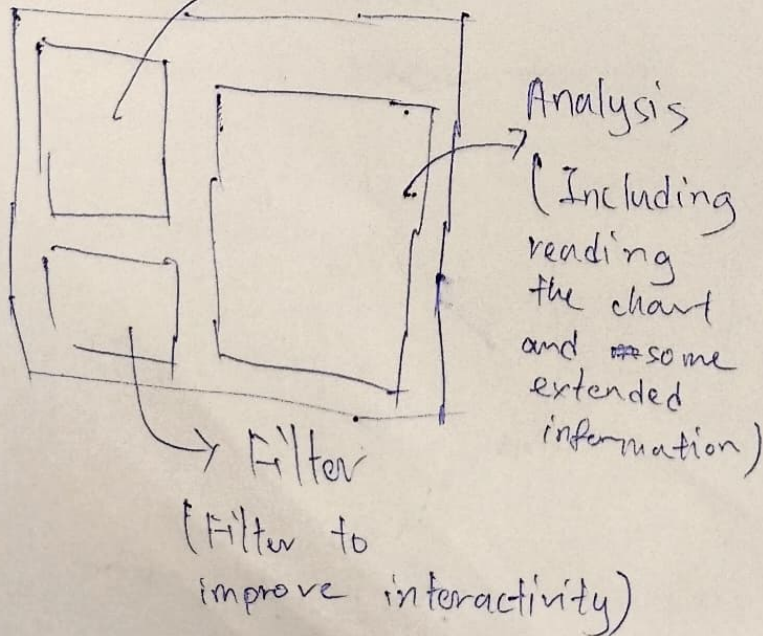 Analysis
(Including
reading
the chart
and some
extended
information)
Filter
(Filter to
improve interactivity)